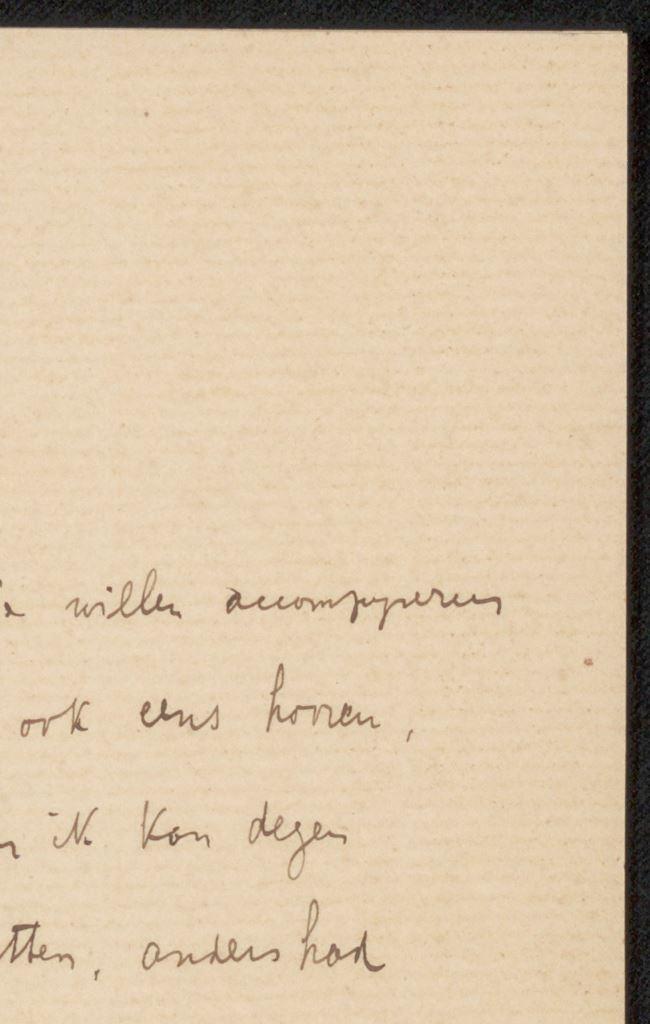 willen accompagneren
ook eens hooren,
ik kon degen
tten, anders had